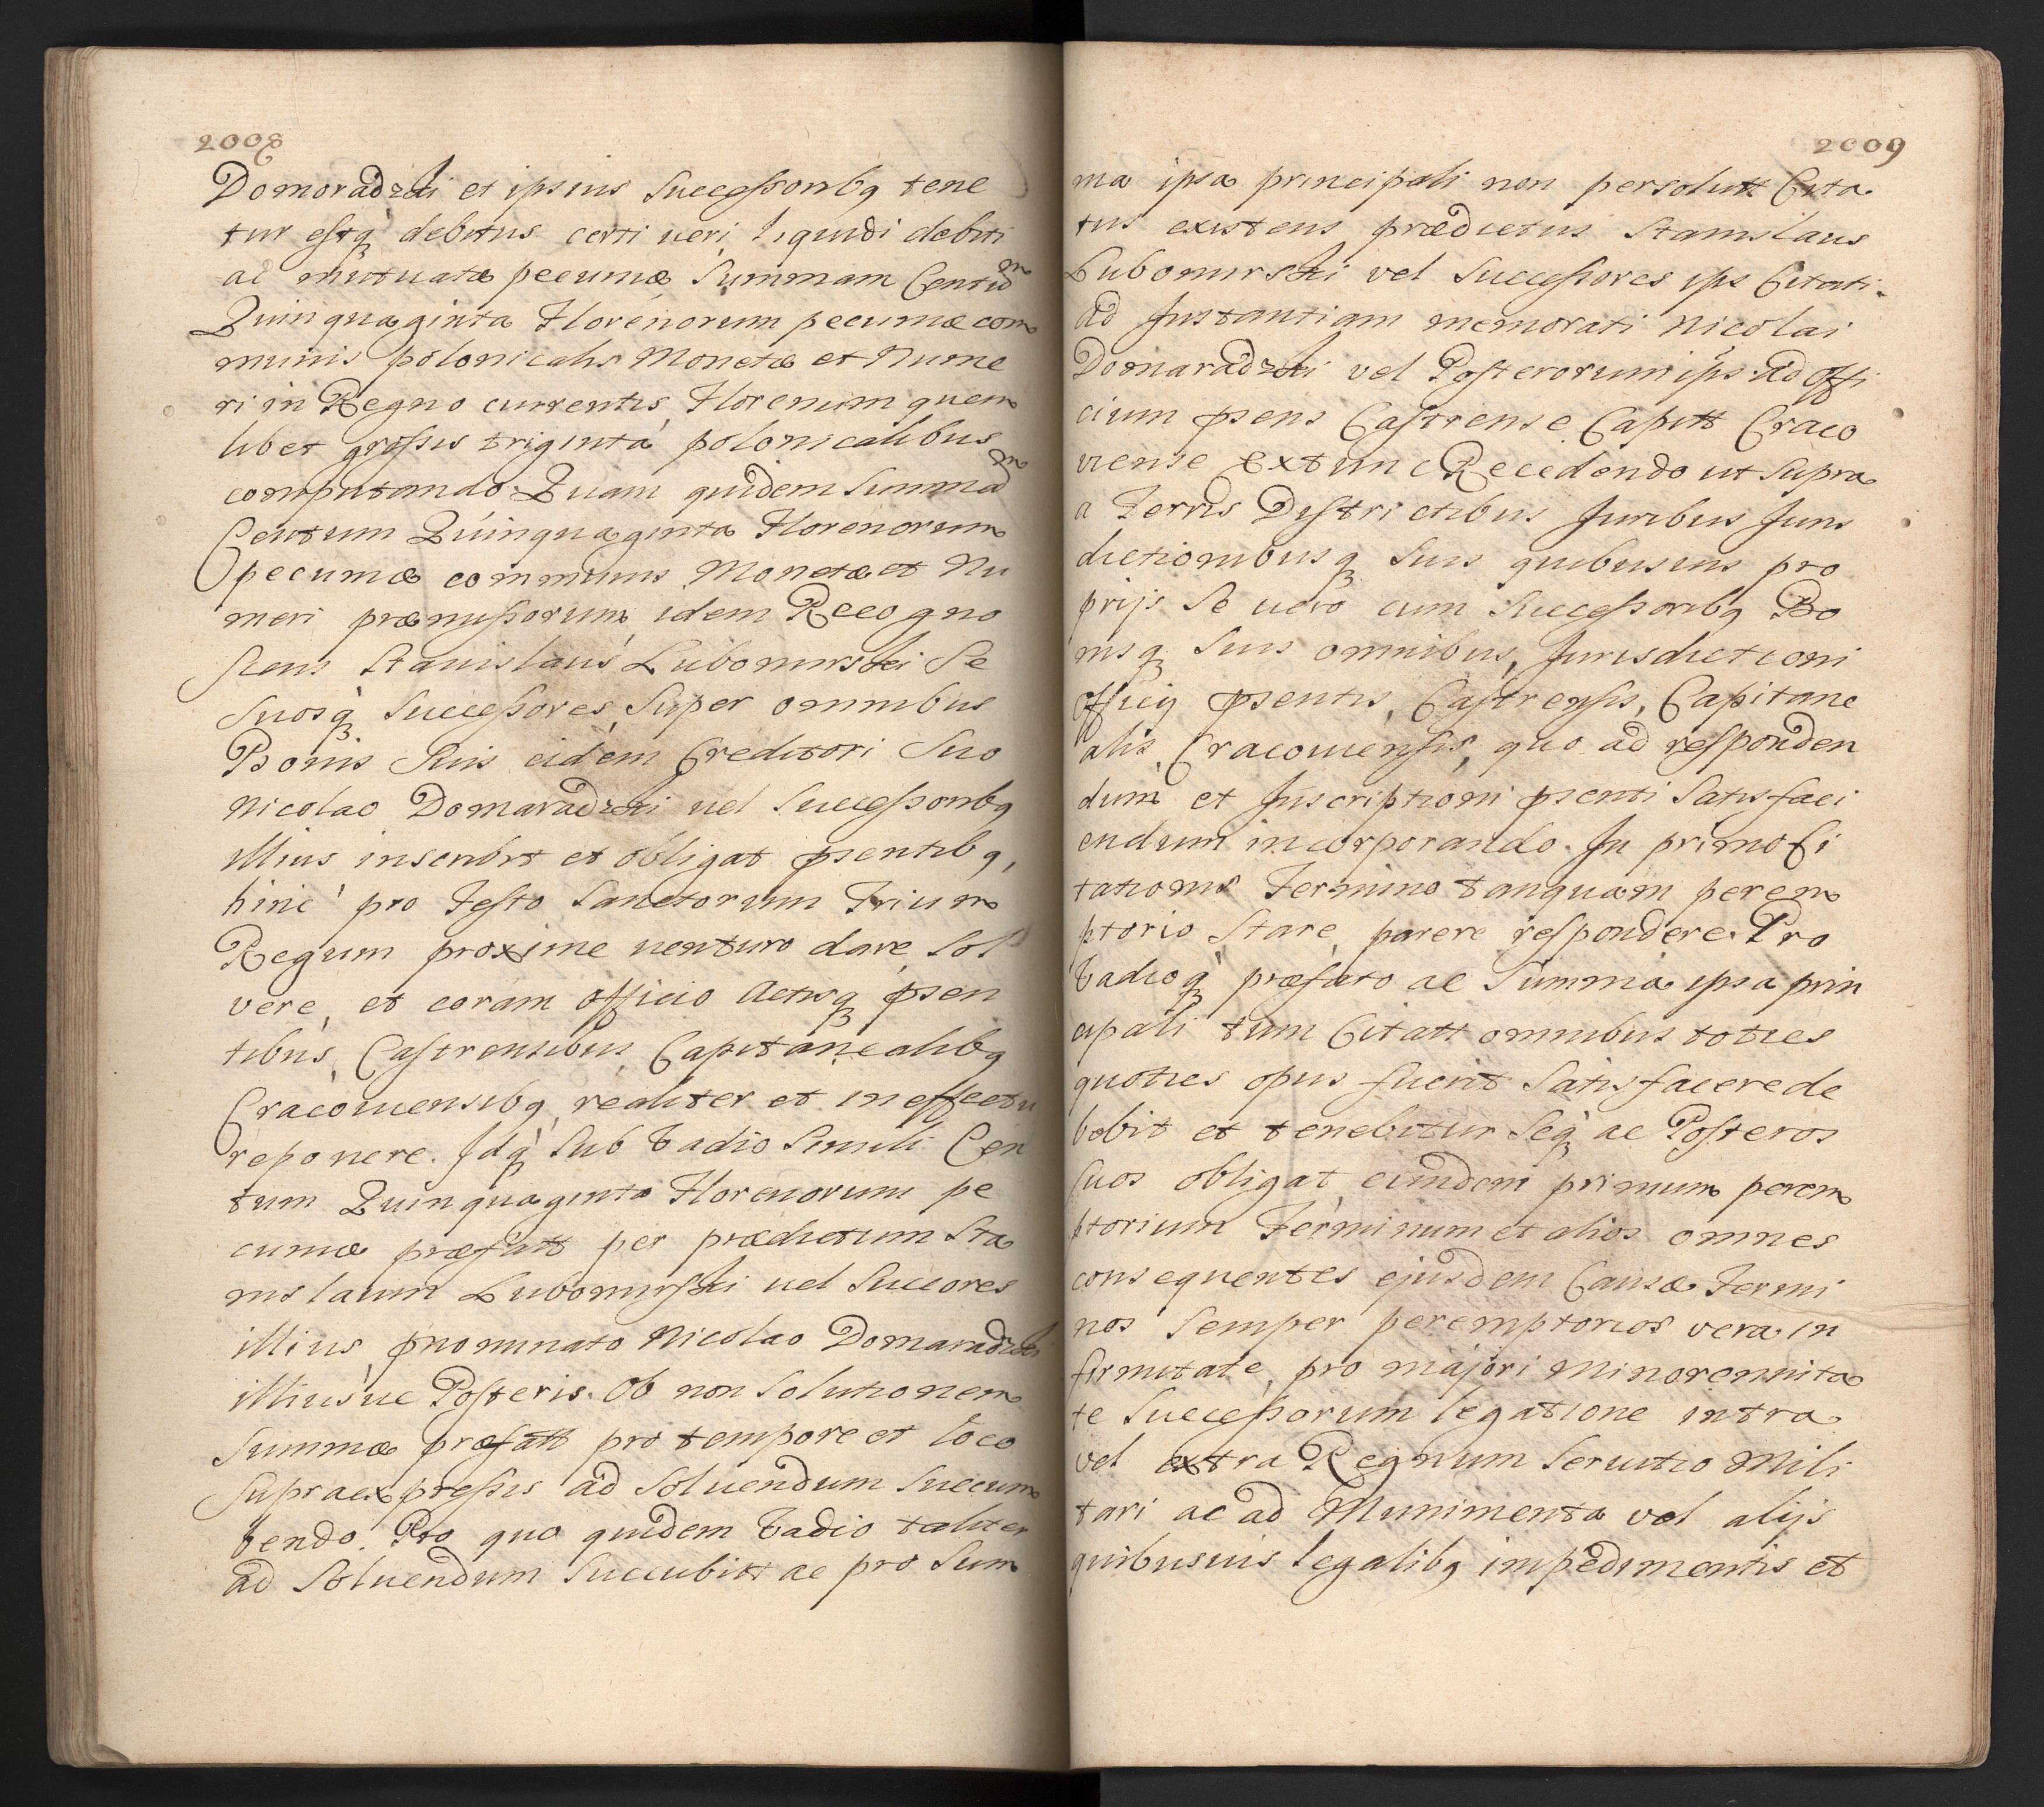 2008
Domoradzki et ipsius Successoribq tene
tur estq debitus certi veri liquidi debiti
ac mutuatæ pecuniæ Summam Centum
Quinquaginta Florenorum pecuniæ com
munis polonicalis Monetæ et Nume
ri in Regno currentis, Florenum quem
libet grossis triginta polonicalibus
computando. Quam quidem Summam
Centum Quinquaginta Florenorum
pecuniæ communis Monetæ et Nu
meri præmissorum idem Recogno
scens Stanislaus Lubomirski Se
Suosq Successores Super omnibus
Bonis Suis eidem Creditori Suo
Nicolao Domaradzki vel Successoribq
illius inscribit et obligat psentibq,
hinc pro Festo Sanctorum Trium
Regum proxime venturo dare, Sol
vere, et coram officio Actisq psen
tibus, Castrensibus Capitanealibq
Cracoviensibq, realiter et in effectu
reponere. Idq Sub Vadio Simili Cen
tum Quinquaginta Florenorum pe
cuniæ præfatt per prædictum Sta
nislaum Lubomirski vel Succores
illius pnominato Nicolao Domaradzki
illiusve Posteris. Ob non Solutionem
Summæ præfatt pro tempore et loco
Supraexpressis ad Solvendum Succum
bendo. Pro quo quidem Vadio taliter
ad Solvendum Succubitt ac pro Sum
2009
ma ipsa principali non persolutt Cita
tus existens prædictus Stanislaus
Lubomirski vel Successores ips Citati
ad Instantiam memorati Nicolai
Domaradzki vel Posterorum ips ad Offi
cium psens Castrense Capitt Craco
viense Extunc Recedendo ut Supra
a Terris Districtibus Juribus Juris
dictionibusq Suis quibusvis pro
prijs Se vero cum Successoribq Bo
nisq Suis omnibus, Jurisdictioni
Officij psentis, Castrensis, Capitane
alis, Cracoviensis, quo ad responden
dum et Inscriptioni psenti Satisfaci
endum incorporando. In primo Ci
tationis Termino tanquam perem
ptorio Stare, parere respondere. Pro
Vadioq præfato ac Summa ipsa prin
cipali tum Citatt omnibus toties
quoties opus fuerit Satisfacere de
bebit et tenebitur Seq ac Posteros
Suos obligat eundem primum perem
ptorium Terminum et alios omnes
consequentes ejusdem Causæ Termi
nos Semper peremptorios vera in
firmitate, pro majori Minorennita
te Successorum legatione intra
vel extra Regnum Servitio Mili
tari ac ad Munimenta vel alijs
quibusvis legalibq impedimentis et